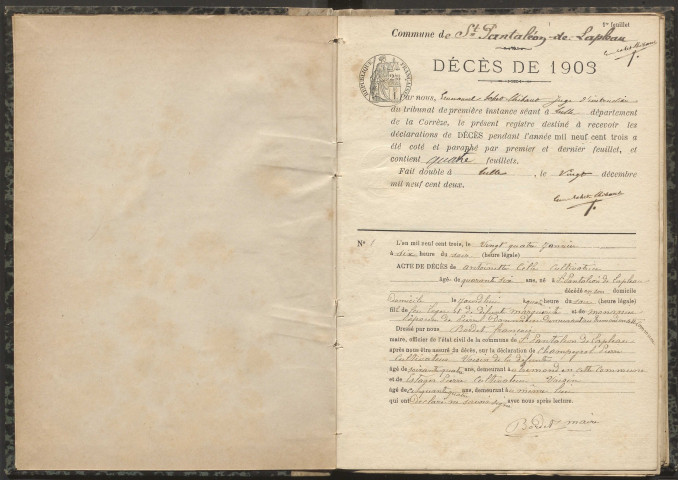 1er feuillet
Commune de St Pantaléon-de-Lapleau
DÉCÈS DE 1903
RÉPUBLIQUE FRANÇAISE
Par nous, Emmanuel juge d'instruction
du tribunal de première instance séant à Tulle département
de la Corrèze, le présent registre destiné à recevoir les
déclarations de DÉCÈS pendant l'année mil neuf cent trois a
été coté et paraphé par premier et dernier feuillet, et
contient quatre feuillets.
Fait double à Tulle, le vingt décembre
mil neuf cent deux.
No 1
L'an mil neuf cent trois, le vingt quatre janvier
à six heure du soir (heure légale)
ACTE DE DÉCÈS de antoinette cultivatrice
âgé de quarante six ans, né à St Pantaléon de Lapleau
décédé en son domicile
domicile le heure du soir (heure légale)
fils de feu et de défunte marguerite
épouse de Pierre
Dressé par nous Bodet françois
maire, officier de l'état civil de la commune de St Pantaléon de Lapleau
après nous être assuré du décès, sur la déclaration de Champeyrol Pierre
cultivateur voisin de la défunte
âgé de soixante quatre ans, demeurant à en cette commune
et de Estager Pierre cultivateur voisin
âgé de cinquante ans, demeurant à même lieu
qui ont déclaré ne savoir signer avec nous après lecture.
Bodet maire